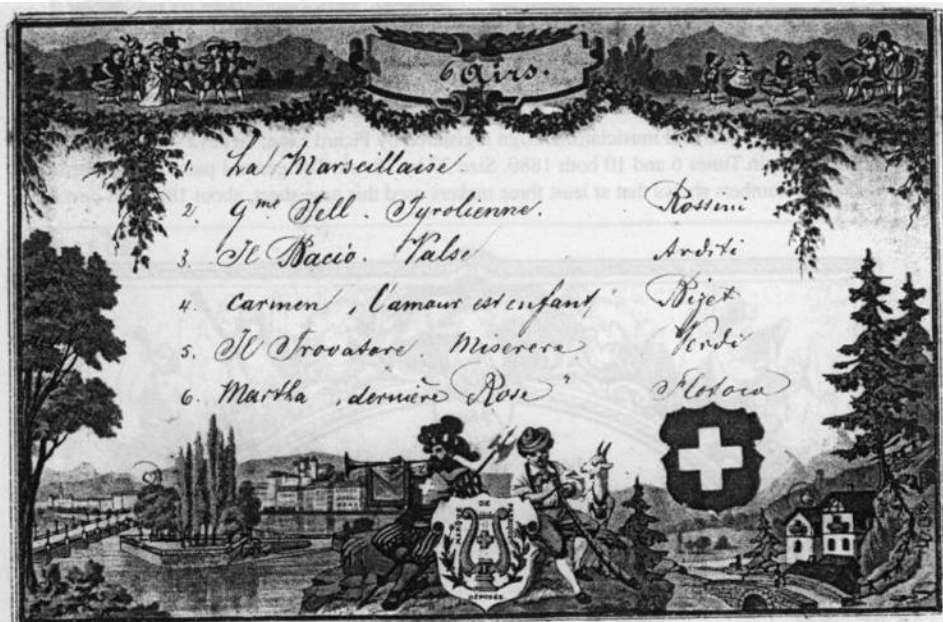 6 Airs.
1. La Marseillaise.
2. Gme Tell. Tyrolienne. Rossini
3. Il Bacio. Valse Arditi
4. Carmen "l'amour est enfant" Bizet
5. Il Trovatore. Miserere Verdi
6. Martha "dernière Rose" Flotow
MARQUE DE FABRIQUE
DÉPOSÉE